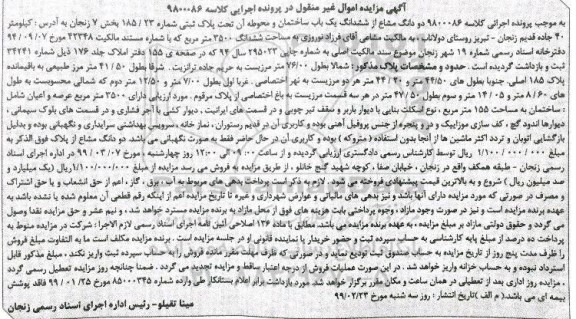 آگهی مزایده اموال غیر منقول در پرونده اجرایی کلاسه ۹۸۰۰۰۸۶
به موجب پرونده اجرائی کلاسه ۹۸۰۰۰۸۶ دو دانگ مشاع از ششدانگ یک باب ساختمان و محوطه آن تحت پلاک ثبتی شماره ۲۳ / ۱۸۵ بخش ۷ زنجان به آدرس: کیلومتر
۴۰ جاده قدیم زنجان - تبریز روستای دولاناب به مالکیت مشاعی آقای فرزاد نوروزی به مساحت ششدانگ ۳۵۰۰ متر مربع که با شماره مستند مالکیت ۴۲۳۴۸ مورخ ۹۴/۰۹/۰۷
دفترخانه اسناد رسمی شماره ۱۹ شهر زنجان موضوع سند مالکیت اصلی به شماره چاپی ۲۹۵۰۲۳ سال ۹۴ که در صفحه ی ۱۵۵ دفتر املاک جلد ۱۷۶ ذیل شماره ۳۴۲۴۱
ثبت و بازداشت گردیده است. حدود و مشخصات پلاک مذکور: شمالا بطول ۷۶/۰۰ متر مرزیست به حریم جاده ترانزیت. شرقا بطول ۴۱ / ۵۰ متر مرز طبیعی به باقیمانده
پلاک ۱۸۵ اصلی. جنوبا بطول های ۴۴/۵۰ متر و ۲۰ / ۴۴ متر هر دو مرزیست به نهر اختصاصی. غربا اول بطول ۷/۰۰ متر و ۱۲/۵۰ متر دوم که شمالی محسوبست به طول
های ۶۰ / ۸ متر و ۰۵ / ۱۴ متر و سوم بطول ۵۰ / ۴۷ متر در هر سه قسمت مرزیست به باغ اختصاصی از پلاک مرقوم. مورد ارزیابی دارای ۳۵۰۰ متر مربع عرصه و اعیان شامل
: ساختمان به مساحت ۱۵۵ متر مربع، نوع اسکلت بنایی با دیوار باربر و سقف تیر چوبی و در قسمت های ایرانیت، دیوار کشی با آجر فشاری و در قسمت های بلوک سیمانی،
دیوارها اندود گچ، کف سازی موزاییک و در و پنجره از جنس پروفیل آهنی بوده و کاربری آن در قدیم رستوران، نماز خانه، سرویس بهداشتی سرایداری و نگهبانی بوده و بدلیل
بازگشایی اتوبان و تردد اکثر ماشین ها از آنجا بدون استفاده (متروکه) بوده و کاربری آن در حال حاضر فقط به صورت نگهبانی می باشد. دو دانگ مشاع از پلاک فوق الذکر به
مبلغ ۰۰۰ / ۰۰۰ / ۱/۱۰۰ ریال توسط کارشناس رسمی دادگستری ارزیابی گردیده و از ساعت ۰۹:۰۰ الی ۱۲:۰۰ روز چهارشنبه مورخ ۰۷ / ۰۳ / ۹۹ در اداره اجرای اسناد
رسمی زنجان - طبقه همکف واقع در زنجان، خیابان صفا، کوچه شهید گنج خانلو، از طریق مزایده به فروش می رسد. مزایده از مبلغ ۱/۱۰۰/۰۰۰/۰۰۰ ریال (یک میلیارد و
صد میلیون ریال) شروع و به بالاترین قیمت پیشنهادی فروخته می شود. لازم به ذکر است پرداخت بدهی های مربوط به آب، برق، گاز، اعم از حق انشعاب و یا حق اشتراک
و مصرف در صورتی که مورد مزایده دارای آنها باشد و نیز بدهی های مالیاتی و عوارض شهرداری و غیره تا تاریخ مزایده اعم از اینکه رقم قطعی آن معلوم شده یا نشده باشد به
عهده برنده مزایده است و نیز در صورت وجود مازاد، وجوه پرداختی بابت هزینه های فوق از محل مازاد به برنده مزایده مسترد خواهد شد، و نیم عشر و حق مزایده نقدا وصول
می گردد و حقوق دولتی مازاد بر مبلغ مزایده، به عهده برنده مزایده می باشد. مطابق با ماده ۱۳۶ اصلاحی آئین نامه اجرای اسناد رسمی لازم الاجرا: شرکت در مزایده منوط به
پرداخت ده درصد از مبلغ پایه کارشناسی به حساب سپرده ثبت و حضور خریدار یا نماینده قانونی او در جلسه مزایده است. برنده مزایده مکلف است ما به التفاوت مبلغ فروش
را ظرف مدت پنج روز از تاریخ مزایده به حساب صندوق ثبت تودیع نماید و در صورتی که ظرف مهلت مقرر مانده فروش را به حساب سپرده ثبت واریز نکند، مبلغ مذکور قابل
استرداد نبوده و به حساب خزانه واریز خواهد شد. در این صورت عملیات فروش از درجه اعتبار ساقط و مزایده تجدید می گردد. ضمنا چنانچه روز مزایده تعطیل رسمی گردد
مزایده روز اداری بعد از تعطیلی در همان ساعت و مکان مقرر برگزار خواهد شد. مورد بازداشت برابر اعلام بستانکار طی وارده شماره ۸۵۰۰۰۳۴۵ مورخ ۲۵ / ۰۱ / ۹۹ فاقد پوشش
بیمه ای می باشد. (م الف) تاریخ انتشار: روز سه شنبه مورخ ۹۹/۰۲/۲۳
مینا تقیلو - رئیس اداره اجرای اسناد رسمی زنجان